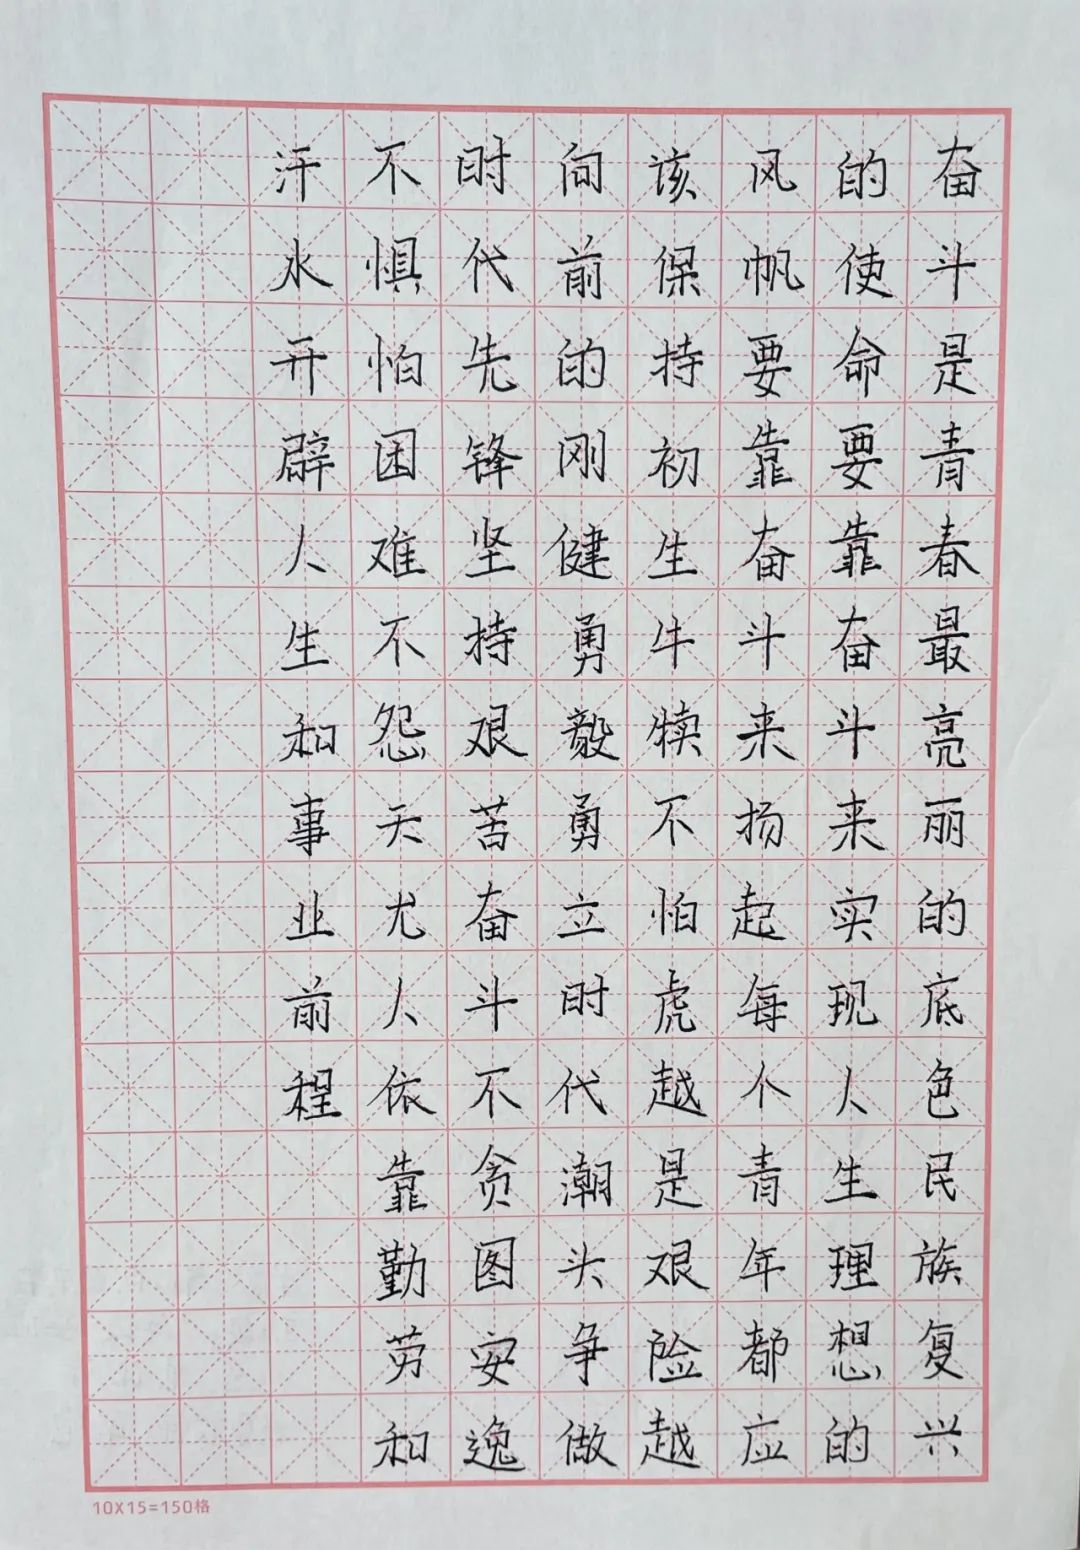 奋斗是青春最亮丽的底色民族复兴
的使命要靠奋斗来实现人生理想的
风帆要靠奋斗来扬起每个青年都应
该保持初生牛犊不怕虎越是艰险越
向前的刚健勇毅勇立时代潮头争做
时代先锋坚持艰苦奋斗不贪图安逸
不惧怕困难不怨天尤人依靠勤劳和
汗水开辟人生和事业前程
10X15=150格